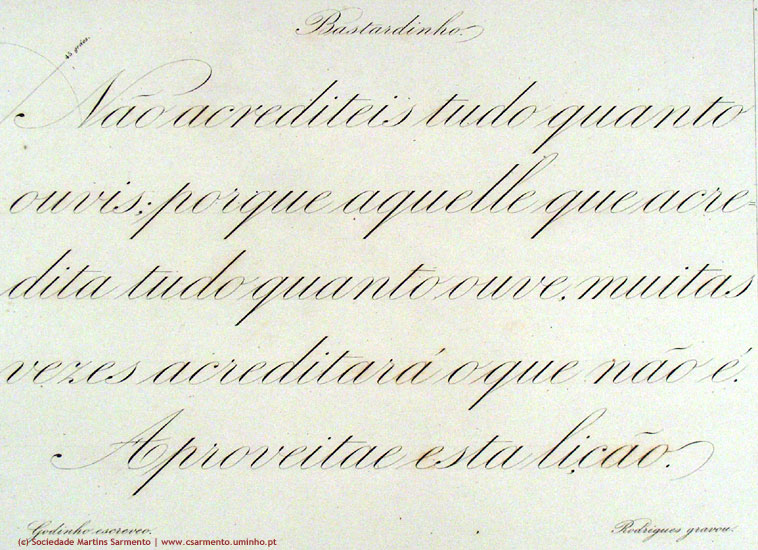 Bastardinho.
45 graos.
Não acrediteis tudo quanto
ouvis; porque aquelle que acre=
dita tudo quanto ouve, muitas
vezes acreditará o que não é.
Aproveitae esta lição.
Godinho escreveo.
Rodrigues gravou.
(c) Sociedade Martins Sarmento | www.csarmento.uminho.pt